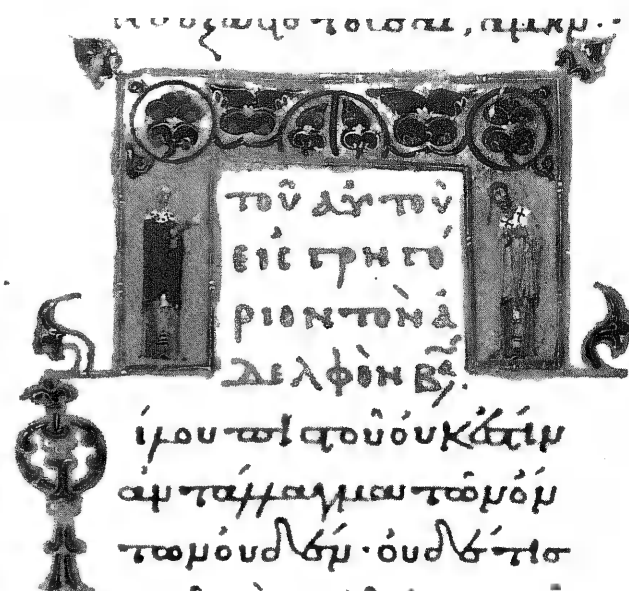 ἀμήν
τοῦ αὐτοῦ
εἰς Γρηγό
ριον τὸν ἀ
δελφὸν Βα
Φίλου πιστοῦ οὐκ ἔστιν
ἀντάλλαγμα τῶν ὄν
των οὐδέν· οὐδέ τις